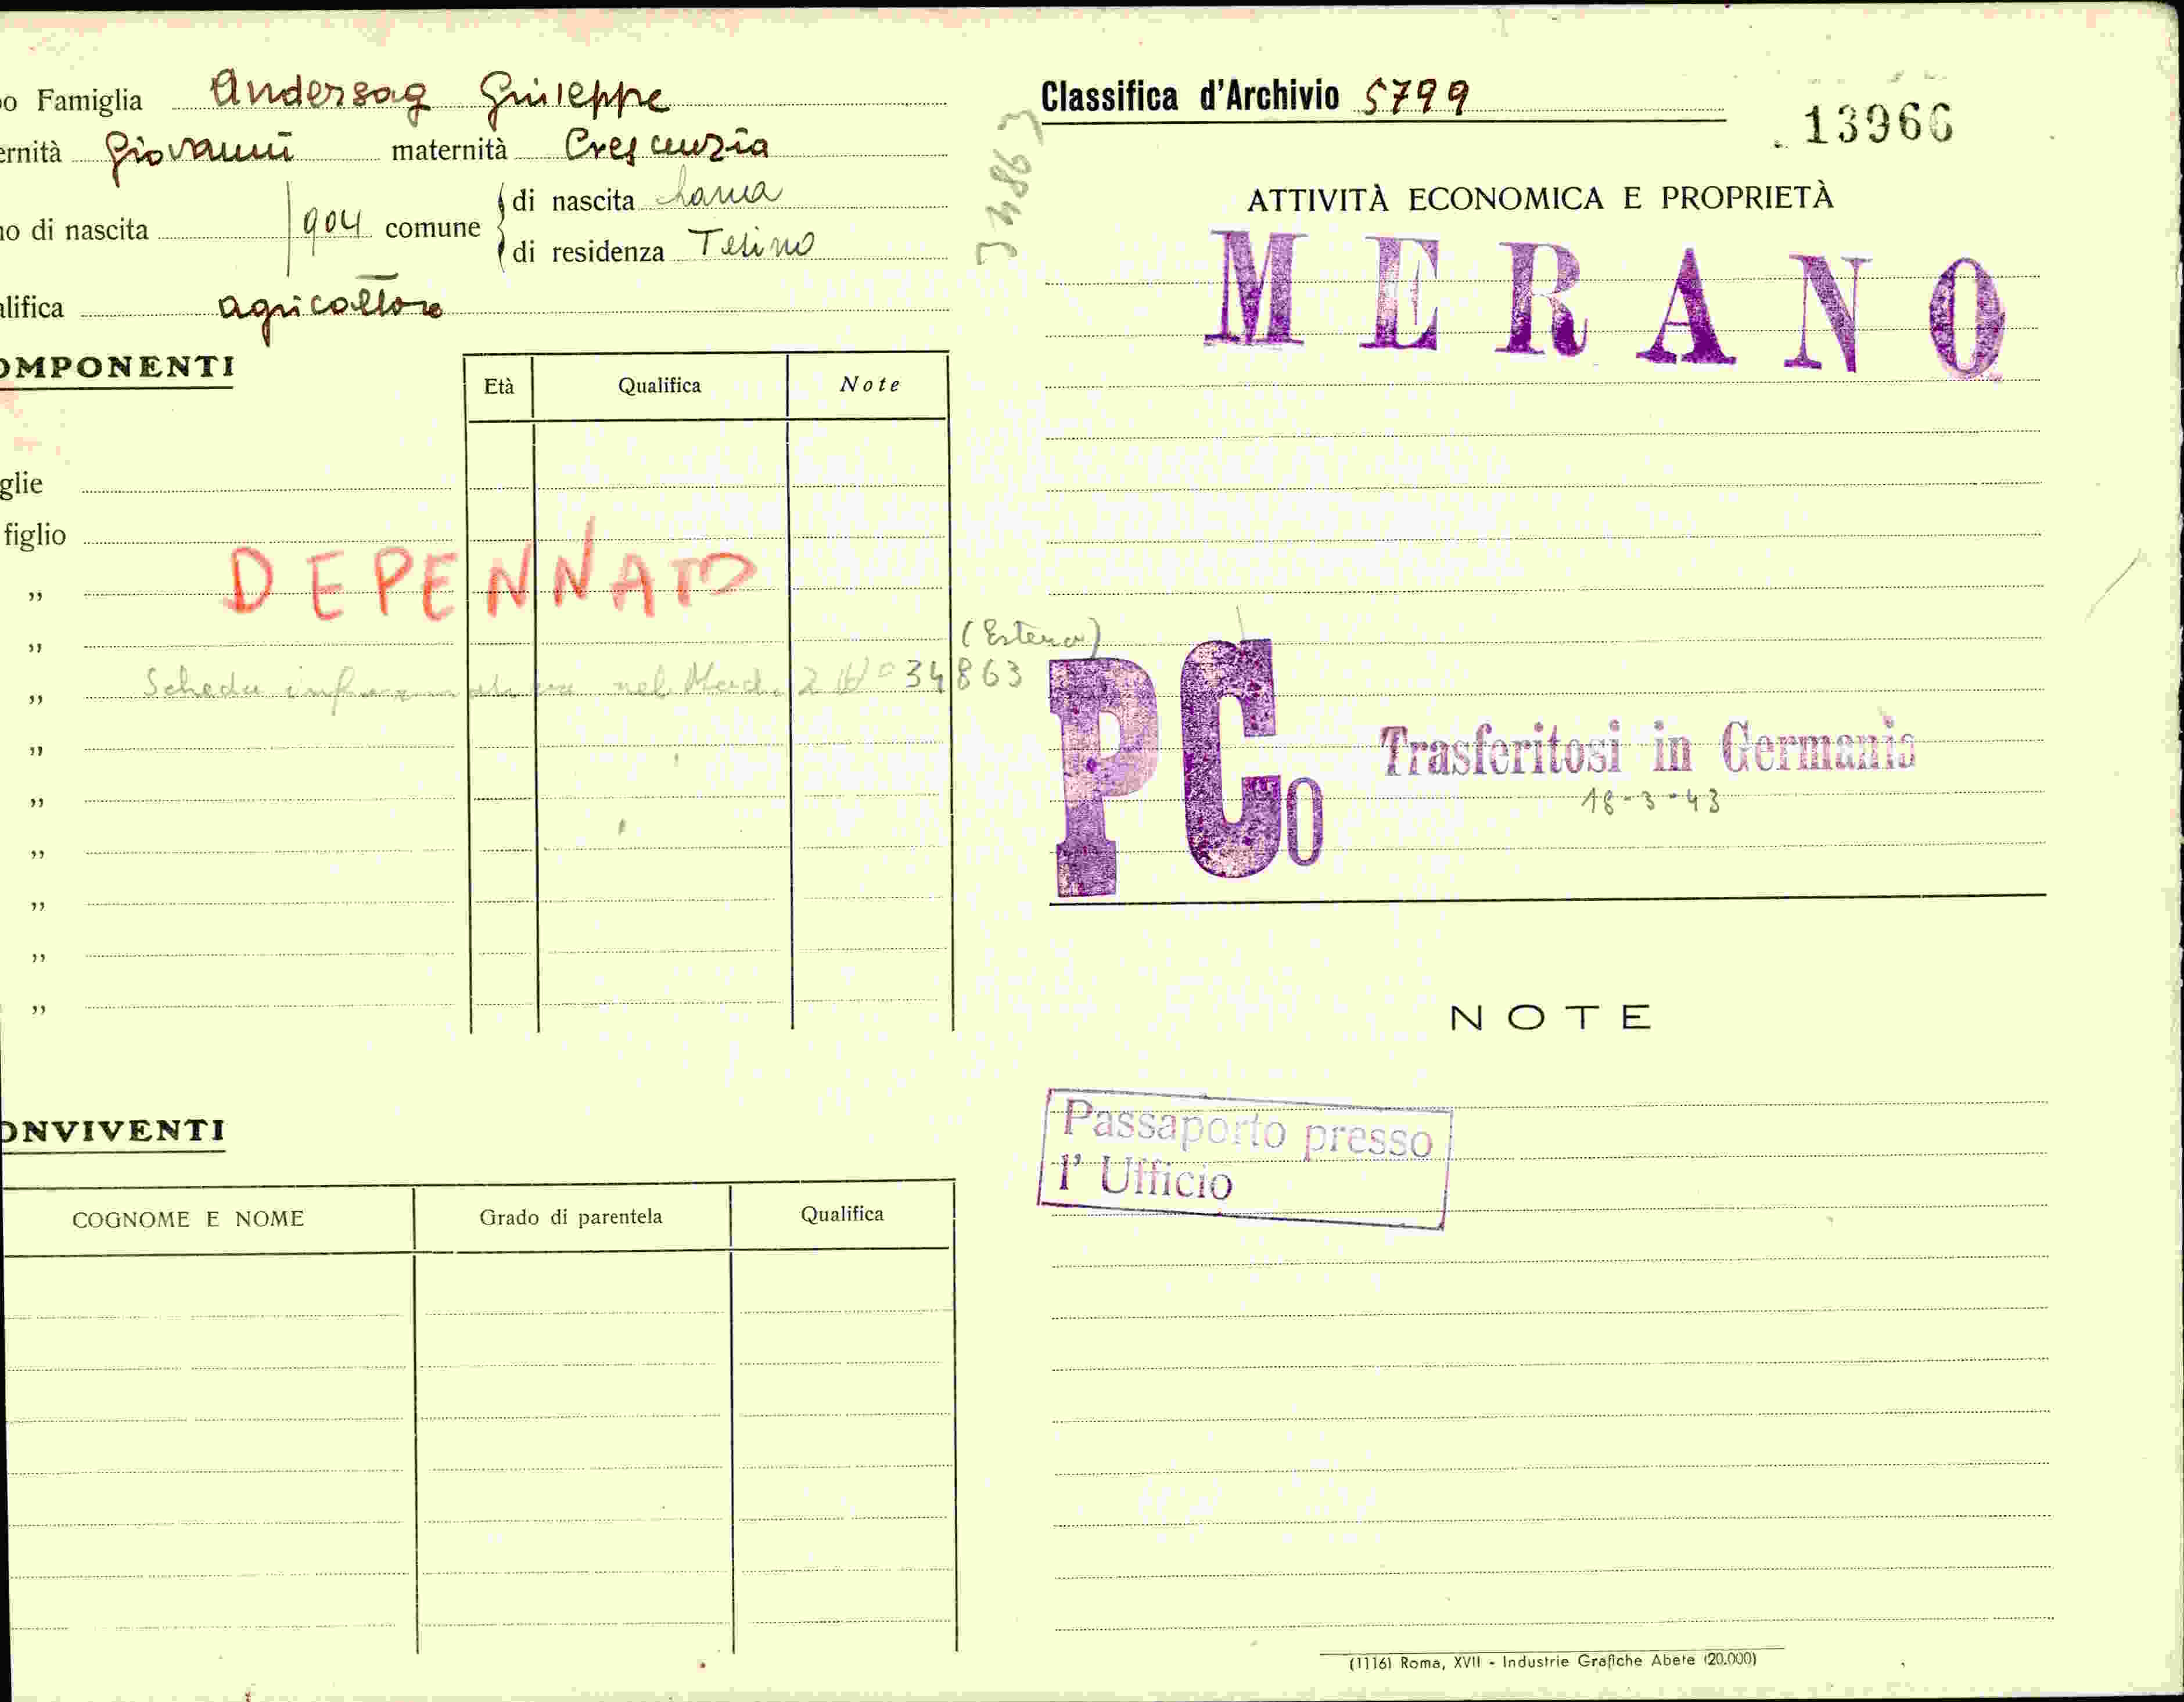 o Famiglia Andersag Giuseppe
ernità Giovanni maternità Crescenzia
o di nascita 904 comune di nascita Lana
di residenza Tesimo
alifica agricoltore
OMPONENTI
Età Qualifica Note
glie
figlio
„
DEPENNATO
„
(Estero)
„ Scheda nel Mod. 2 N° 34863
„
„
„
„
„
„
ONVIVENTI
COGNOME E NOME Grado di parentela Qualifica
34863
Classifica d'Archivio 5799
13966
ATTIVITÀ ECONOMICA E PROPRIETÀ
MERANO
PCo
Trasferitosi in Germania
18-3-43
NOTE
Passaporto presso
l' Ufficio
(1116) Roma, XVII - Industrie Grafiche Abete (20.000)